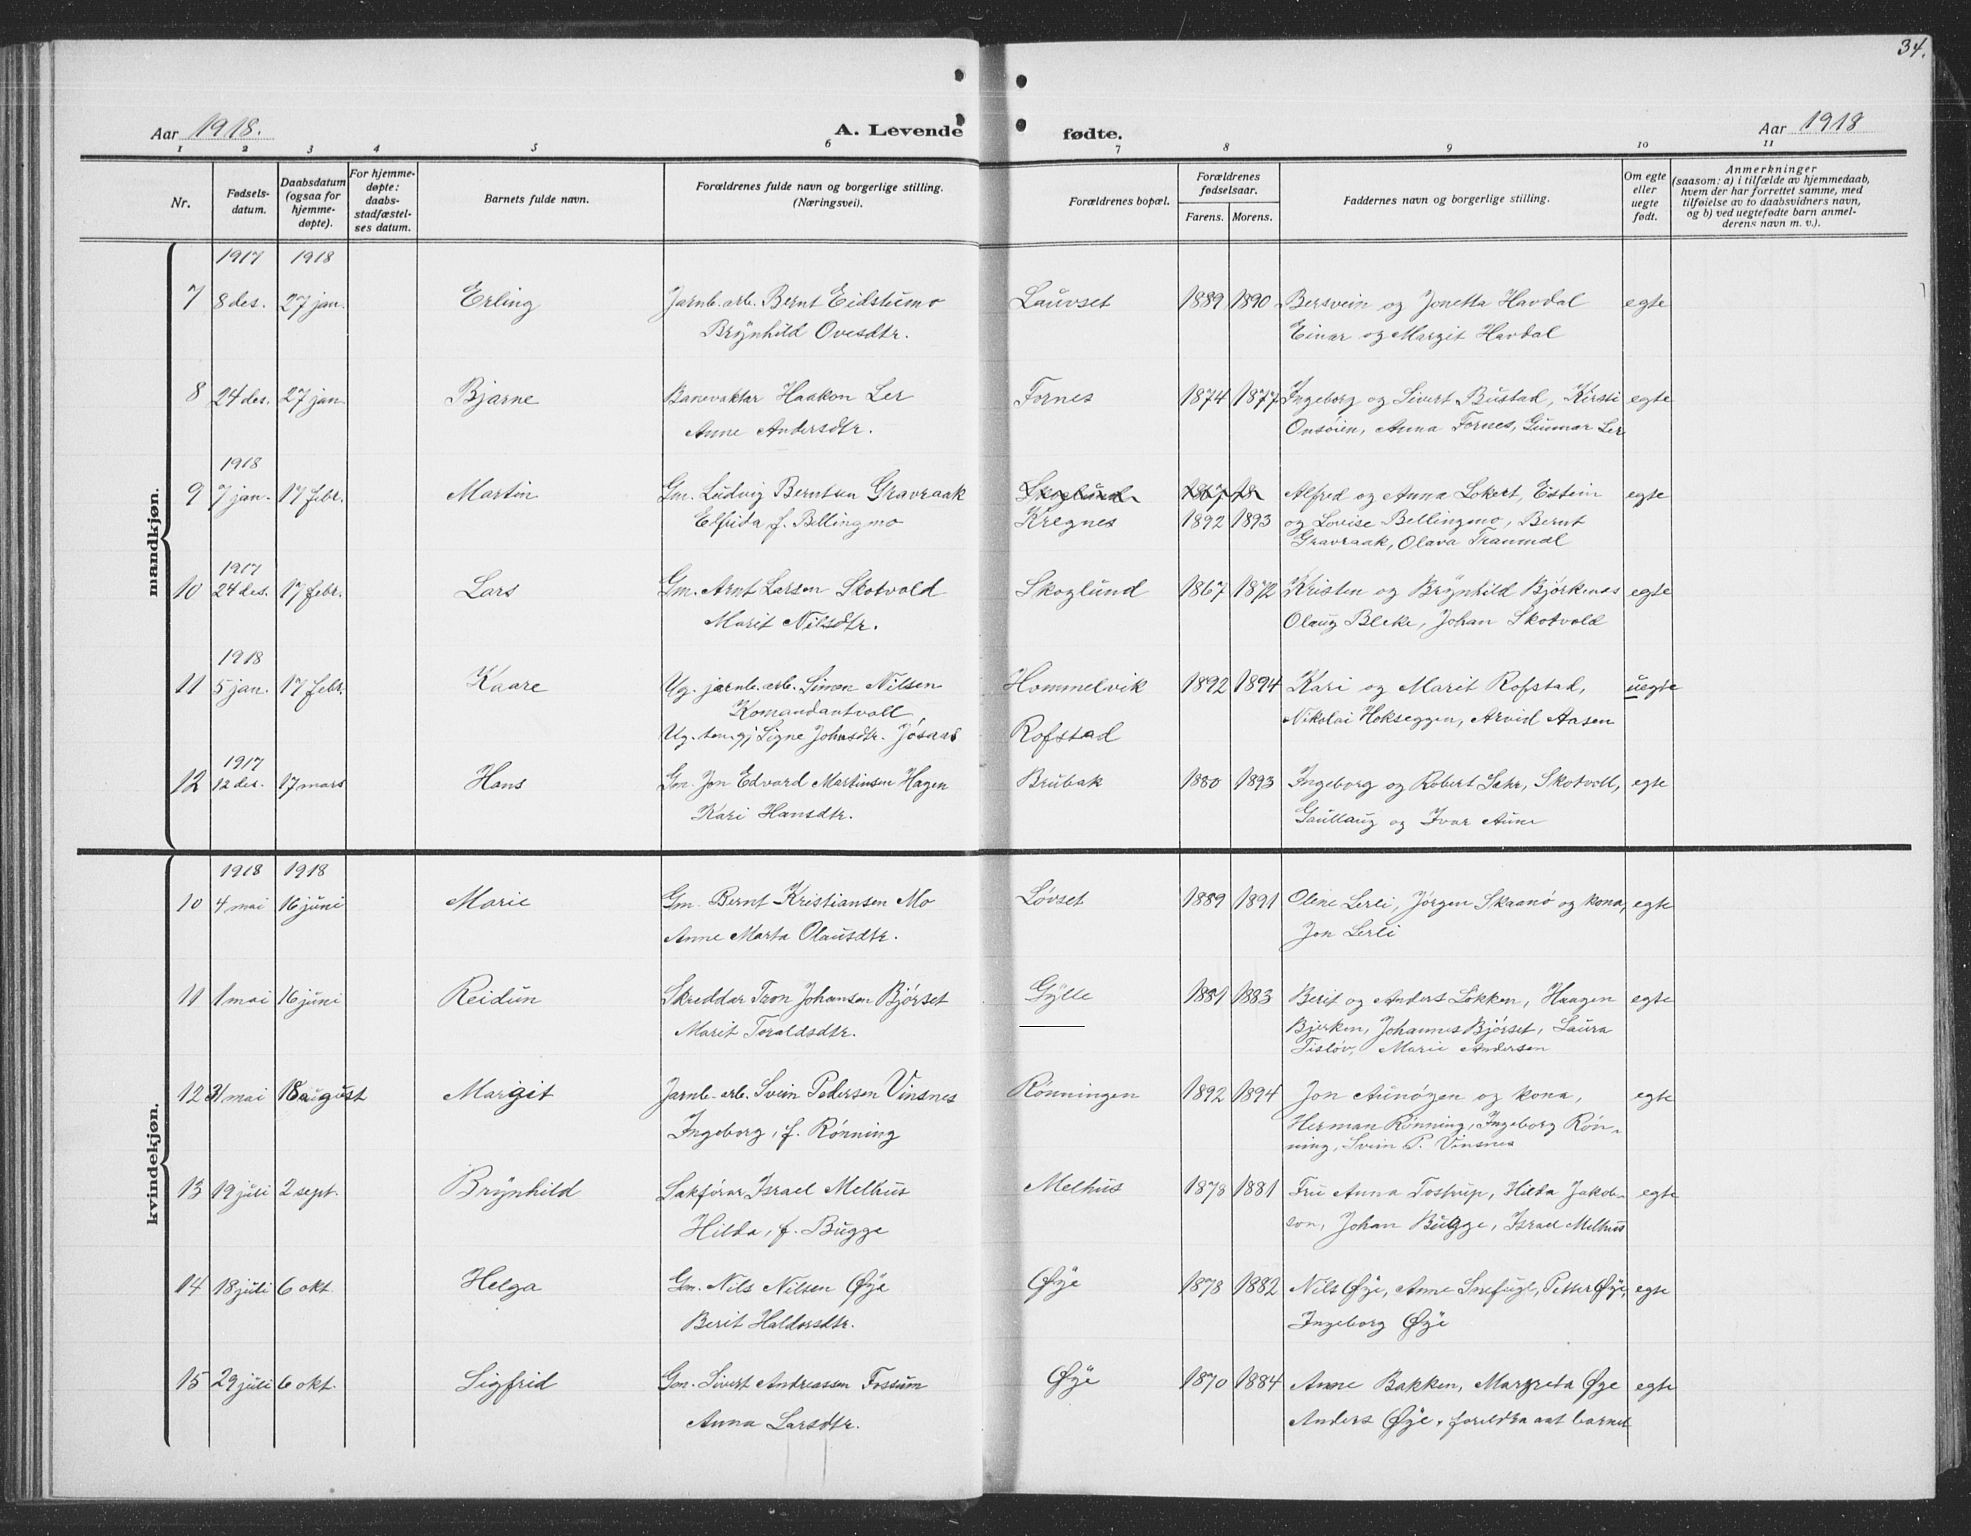 34.
Aar 1918. A. Levende fødte. Aar 1918
1 2 3 4 5 6 7 8 9 10 11
Nr. Fødsels-datum. Daabsdatum (ogsaa for hjemme-døpte). For hjemme-døpte: daabs-stadfæstel-ses datum. Barnets fulde navn. Forældrenes fulde navn og borgerlige stilling. (Næringsvei). Forældrenes bopæl. Forældrenes fødselsaar. Farens. Morens. Faddernes navn og borgerlige stilling. Om egte eller uegte født. Anmerkninger (saasom: a) i tilfælde av hjemmedaab, hvem der har forrettet samme, med tilføielse av to daabsvidners navn, og b) ved uegtefødte barn anmel-derens navn m. v.).
mandkjøn.
1917 1918
7 8 des. 27 jan. Erling Jarnb. arb. Bernt Eidstumo Lauvset 1889 1890 Bersvein og Jonetta Havdal egte
Brynhild Ovesdtr. Einar og Margit Havdal
8 24 des. 27 jan. Bjarne Banevaktar Haakon Ler Fornes 1874 1877 Ingeborg og Sivert Bustad, Kirsti egte
Anne Andersdtr. Onsøien, Anna Fornes, Gunnar Ler
1918
9 7 jan. 17 febr. Martin Gm. Ludvig Berntsen Gravraak Skoglund 1867 Alfred og Anna Lokert, Estein egte
Elfrida, f. Bellingmo Kregnes 1892 1893 og Lovise Bellingmo, Bernt
Gravraak, Olava Tranmæl
1917
10 24 des. 17 febr. Lars Gm. Arnt Larsen Skotvold Skoglund 1867 1872 Kristen og Brynhild Bjørkenes egte
Marit Nilsdtr. Olaug Bleke, Johan Skotvold
1918
11 5 jan. 17 febr. Kaare Ug. jarnb. arb. Simen Nilsen Hommelvik 1892 1894 Kari og Marit Rofstad, uegte
Komandantvoll Nikolai Hokseggen, Arvid Aasen
Ug. ten.gj Signe Johnsdtr. Jøsaas Rofstad
1917
12 12 des. 17 mars Hans Gm. Jon Edvard Martinsen Hagen Brubak 1880 1893 Ingeborg og Robert Sehr, Skotvoll, egte
Kari Hansdtr. Gaullaug og Ivar Aune
kvindekjøn.
1918 1918
10 4 mai 16 juni Marie Gm. Bernt Kristiansen Mo Løvset 1889 1891 Oline Lerli, Jørgen Skaanø og kona, egte
Anne Marta Olausdtr. Jon Lerli
11 1 mai 16 juni Reidun Skreddar Tron Johansen Bjørset Gylle 1881 1883 Berit og Anders Løkken, Haagen egte
Marit Toraldsdtr. Bjerken, Johannes Bjørset, Laura
Tisløv, Marie Andersen
12 31 mai 18 august Margit Jarnb. arb. Svein Pedersen Vinsnes Rønningen 1892 1894 Jon Aunøgen og kona, egte
Ingeborg, f. Rønning Herman Rønning, Ingeborg Røn-
ning, Svein P. Vinsnes
13 19 juli 2 sept. Brynhild Sakførar Israel Melhus Melhus 1878 1881 Fru Anna Tostrup, Hilda Jakob- egte
Hilda, f. Bugge son, Johan Bugge, Israel Melhus
14 18 juli 6 okt. Helga Gm. Nils Nilsen Øye Øye 1878 1882 Nils Øye, Anne Snefugl, Petter Øye, egte
Berit Haldorsdtr. Ingeborg Øye
15 29 juli 6 okt. Sigfrid Gm. Sivert Andreassen Fossum Øye 1870 1884 Anne Bakken, Margreta Øye egte
Anna Larsdtr. Anders Øye, foreldra aat barnet